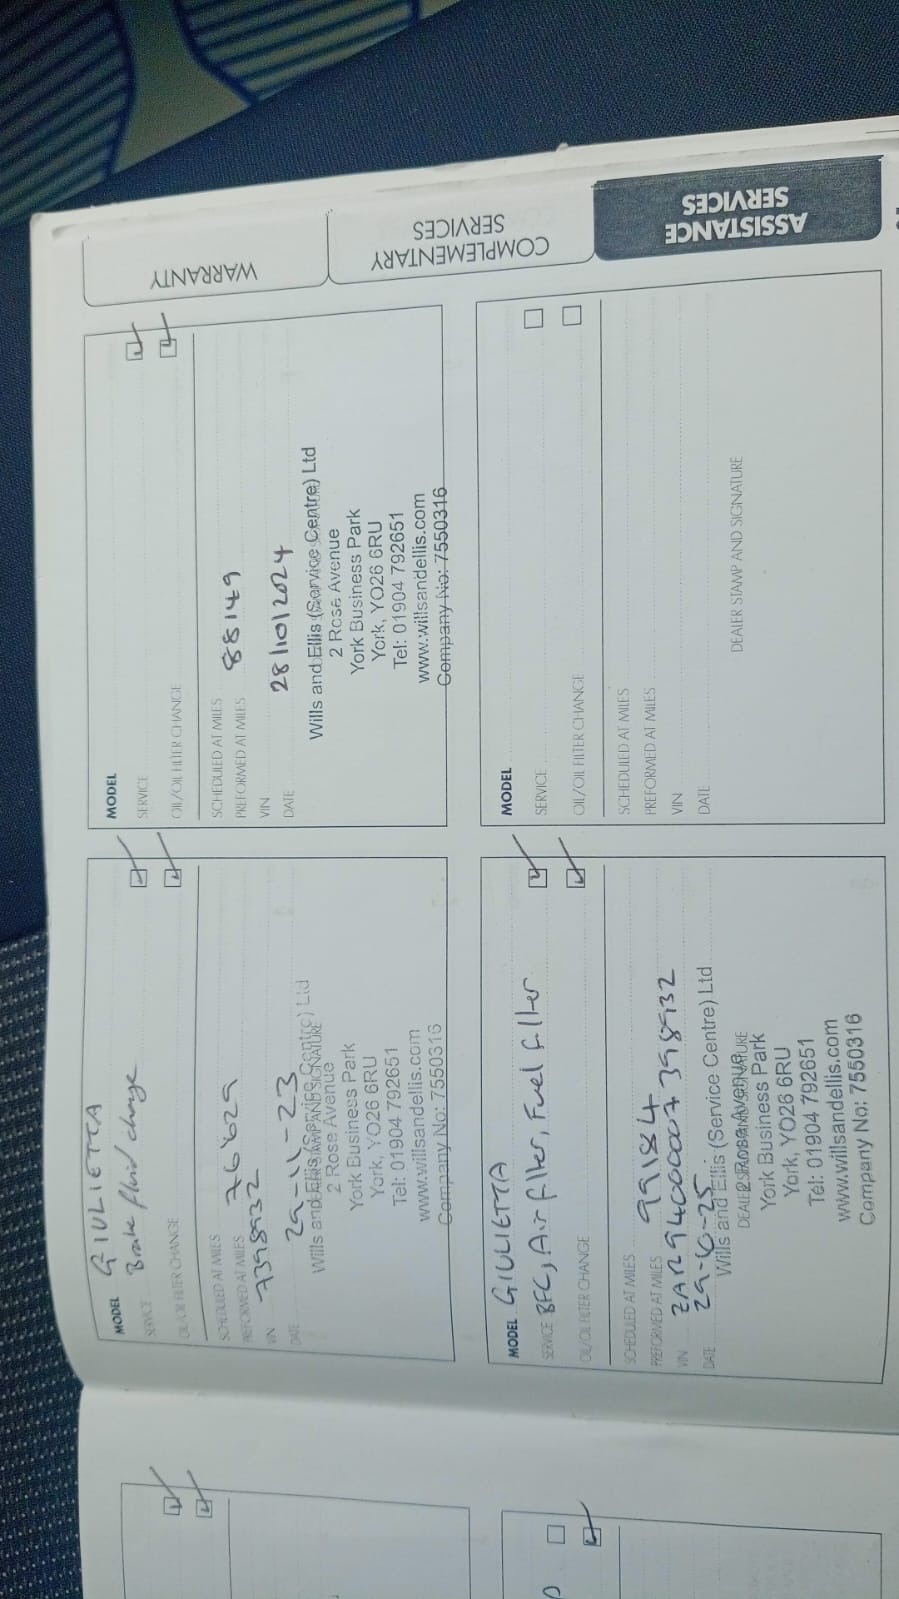 WARRANTY
COMPLEMENTARY
SERVICES
ASSISTANCE
SERVICES
MODEL GIULIETTA
Brake fluid change
SERVICE
OIL/OIL FILTER CHANGE
SCHEDULED AT MILES
PREFORMED AT MILES 76629
7398932
VIN
29-11-23
DATE
Wills and Ellis (Service Centre) Ltd
DEALER STAMP AND SIGNATURE
2 Rose Avenue
York Business Park
York, YO26 6RU
Tel: 01904 792651
www.willsandellis.com
Company No: 7550316
MODEL
SERVICE
OIL/OIL FILTER CHANGE
SCHEDULED AT MILES
PREFORMED AT MILES 88149
VIN
DATE 28/10/2024
Wills and Ellis (Service Centre) Ltd
2 Rose Avenue
York Business Park
York, YO26 6RU
Tel: 01904 792651
www.willsandellis.com
Company No: 7550316
MODEL GIULIETTA
SERVICE BFC, Air filter, Fuel filter
OIL/OIL FILTER CHANGE
SCHEDULED AT MILES
PREFORMED AT MILES 99184
VIN ZAR94000007398932
DATE
Wills and Ellis (Service Centre) Ltd
DEALER STAMP AND SIGNATURE
2 Rose Avenue
York Business Park
York, YO26 6RU
Tel: 01904 792651
www.willsandellis.com
Company No: 7550316
MODEL
SERVICE
OIL/OIL FILTER CHANGE
SCHEDULED AT MILES
PREFORMED AT MILES
VIN
DATE
DEALER STAMP AND SIGNATURE